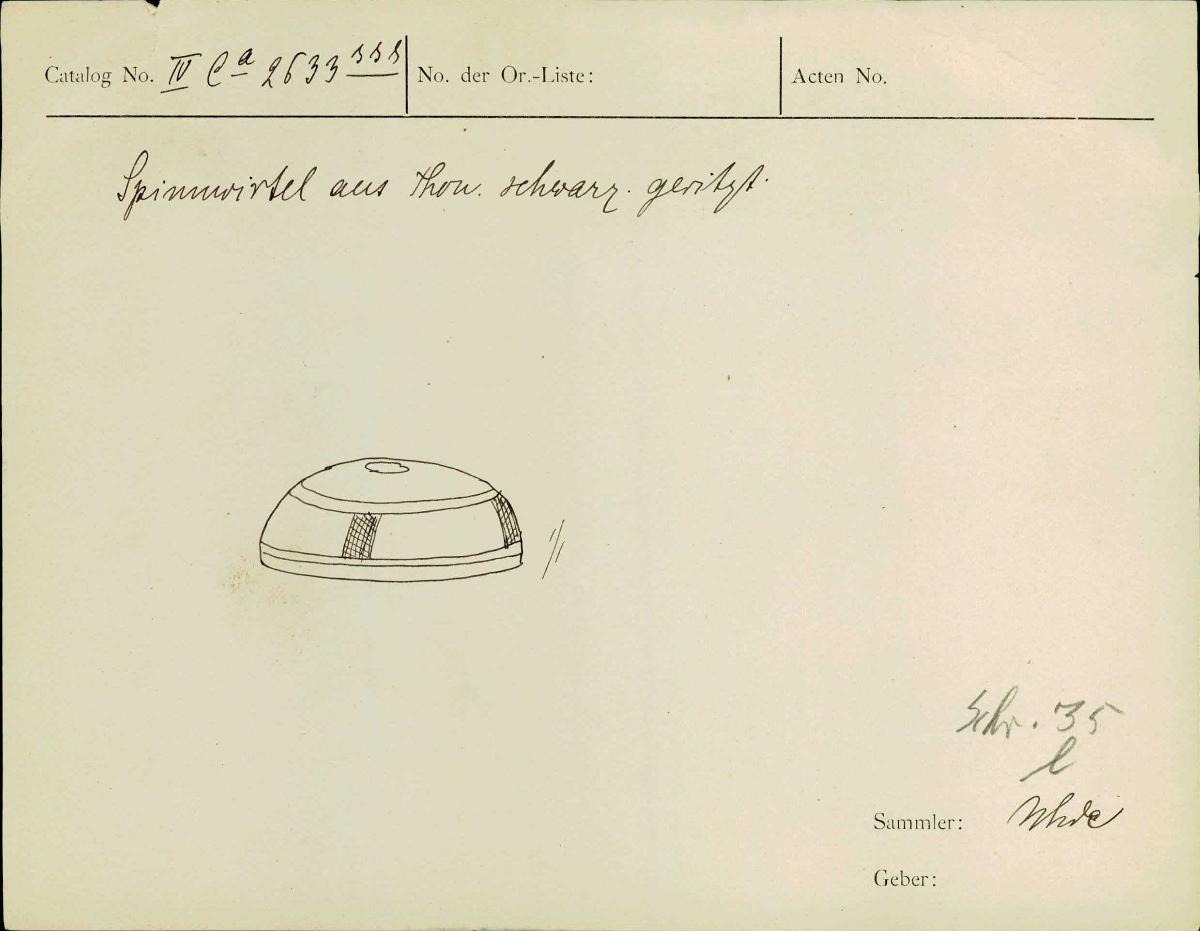 Catalog No. IV Ca 2633 sss
No. der Or.-Liste:
Acten No.
Spinnwirtel aus Thon. schwarz. geritzt.
1/1
Schr. 35
l
Sammler: Uhde
Geber: